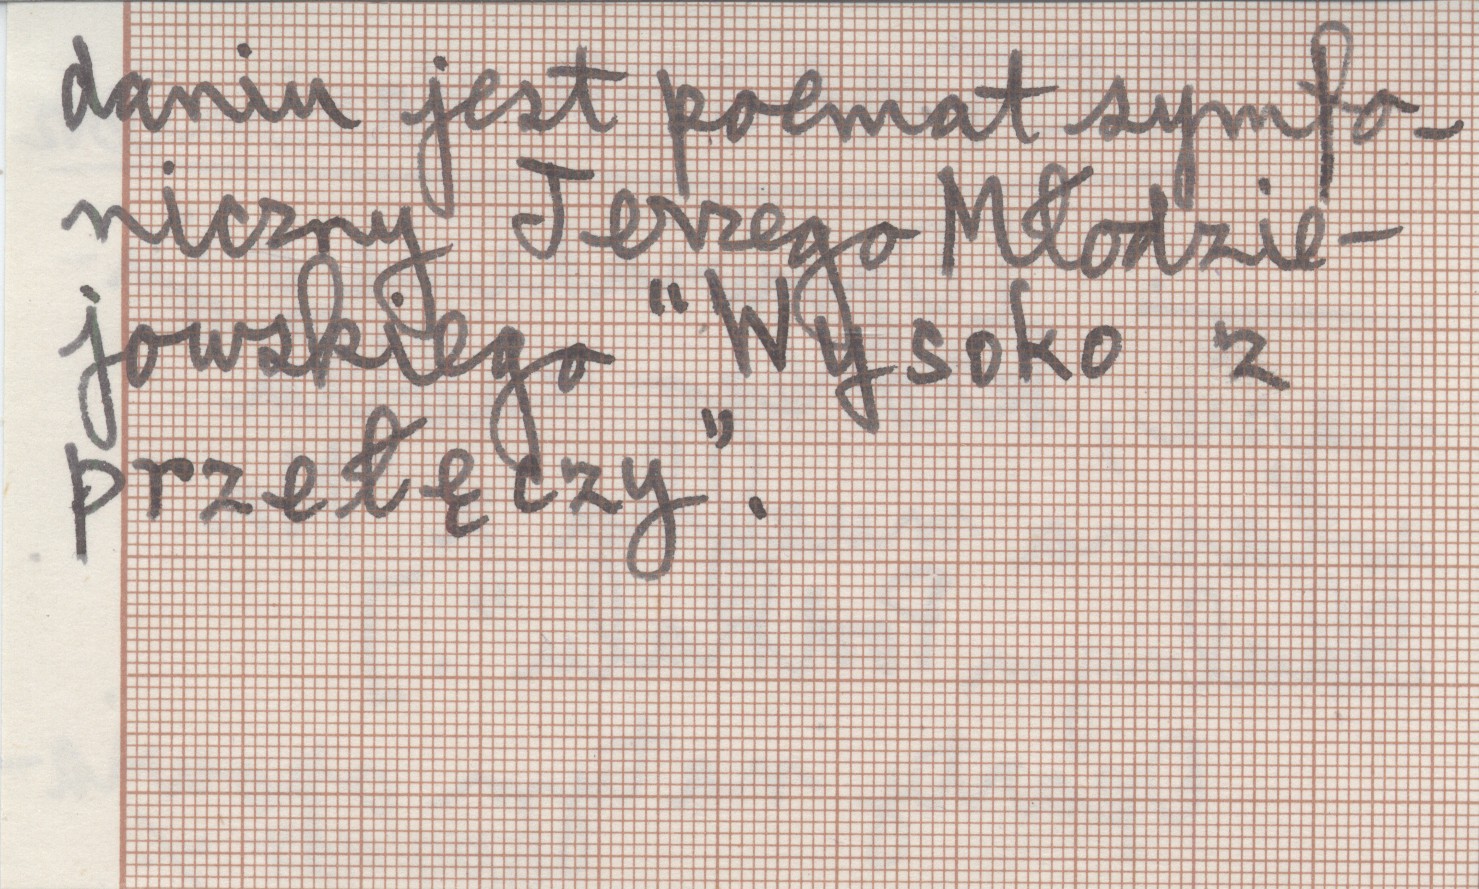 daniu jest poemat symfo-
niczny Jerzego Młodzie-
jowskiego "Wysoko z
przełęczy".